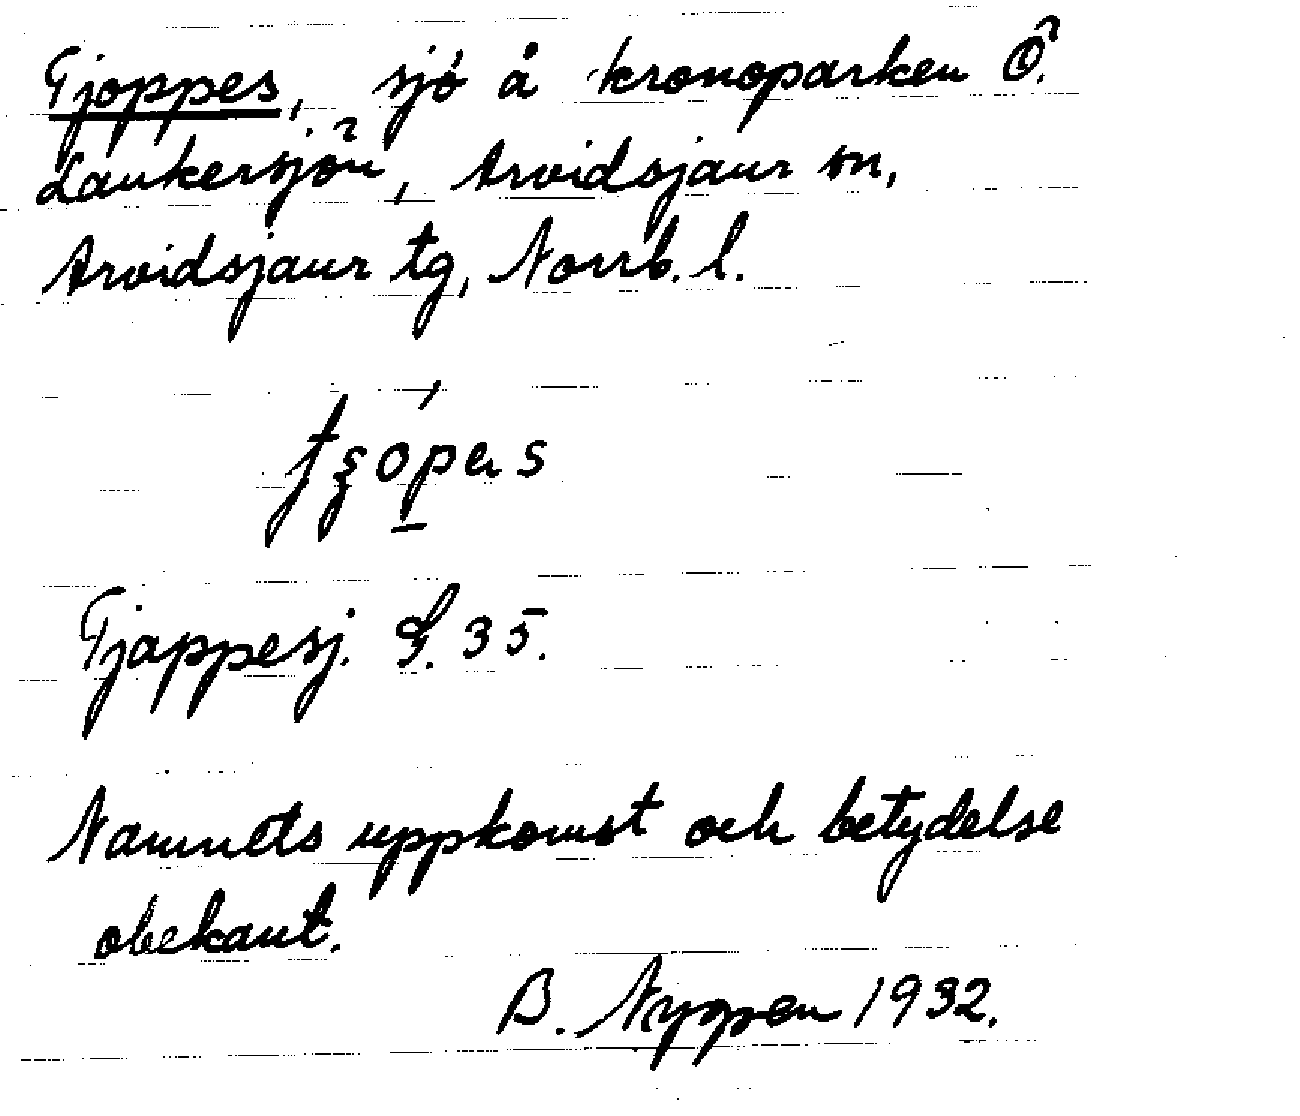 Tjoppes, sjö å kronoparken Ö.
Laukersjön, Arvidsjaur sn,
Arvidsjaur tg, Norrb. l.
Tjappesj. S. 35.
Namnets uppkomst och betydelse
obekant.
B. Nyppen 1932.